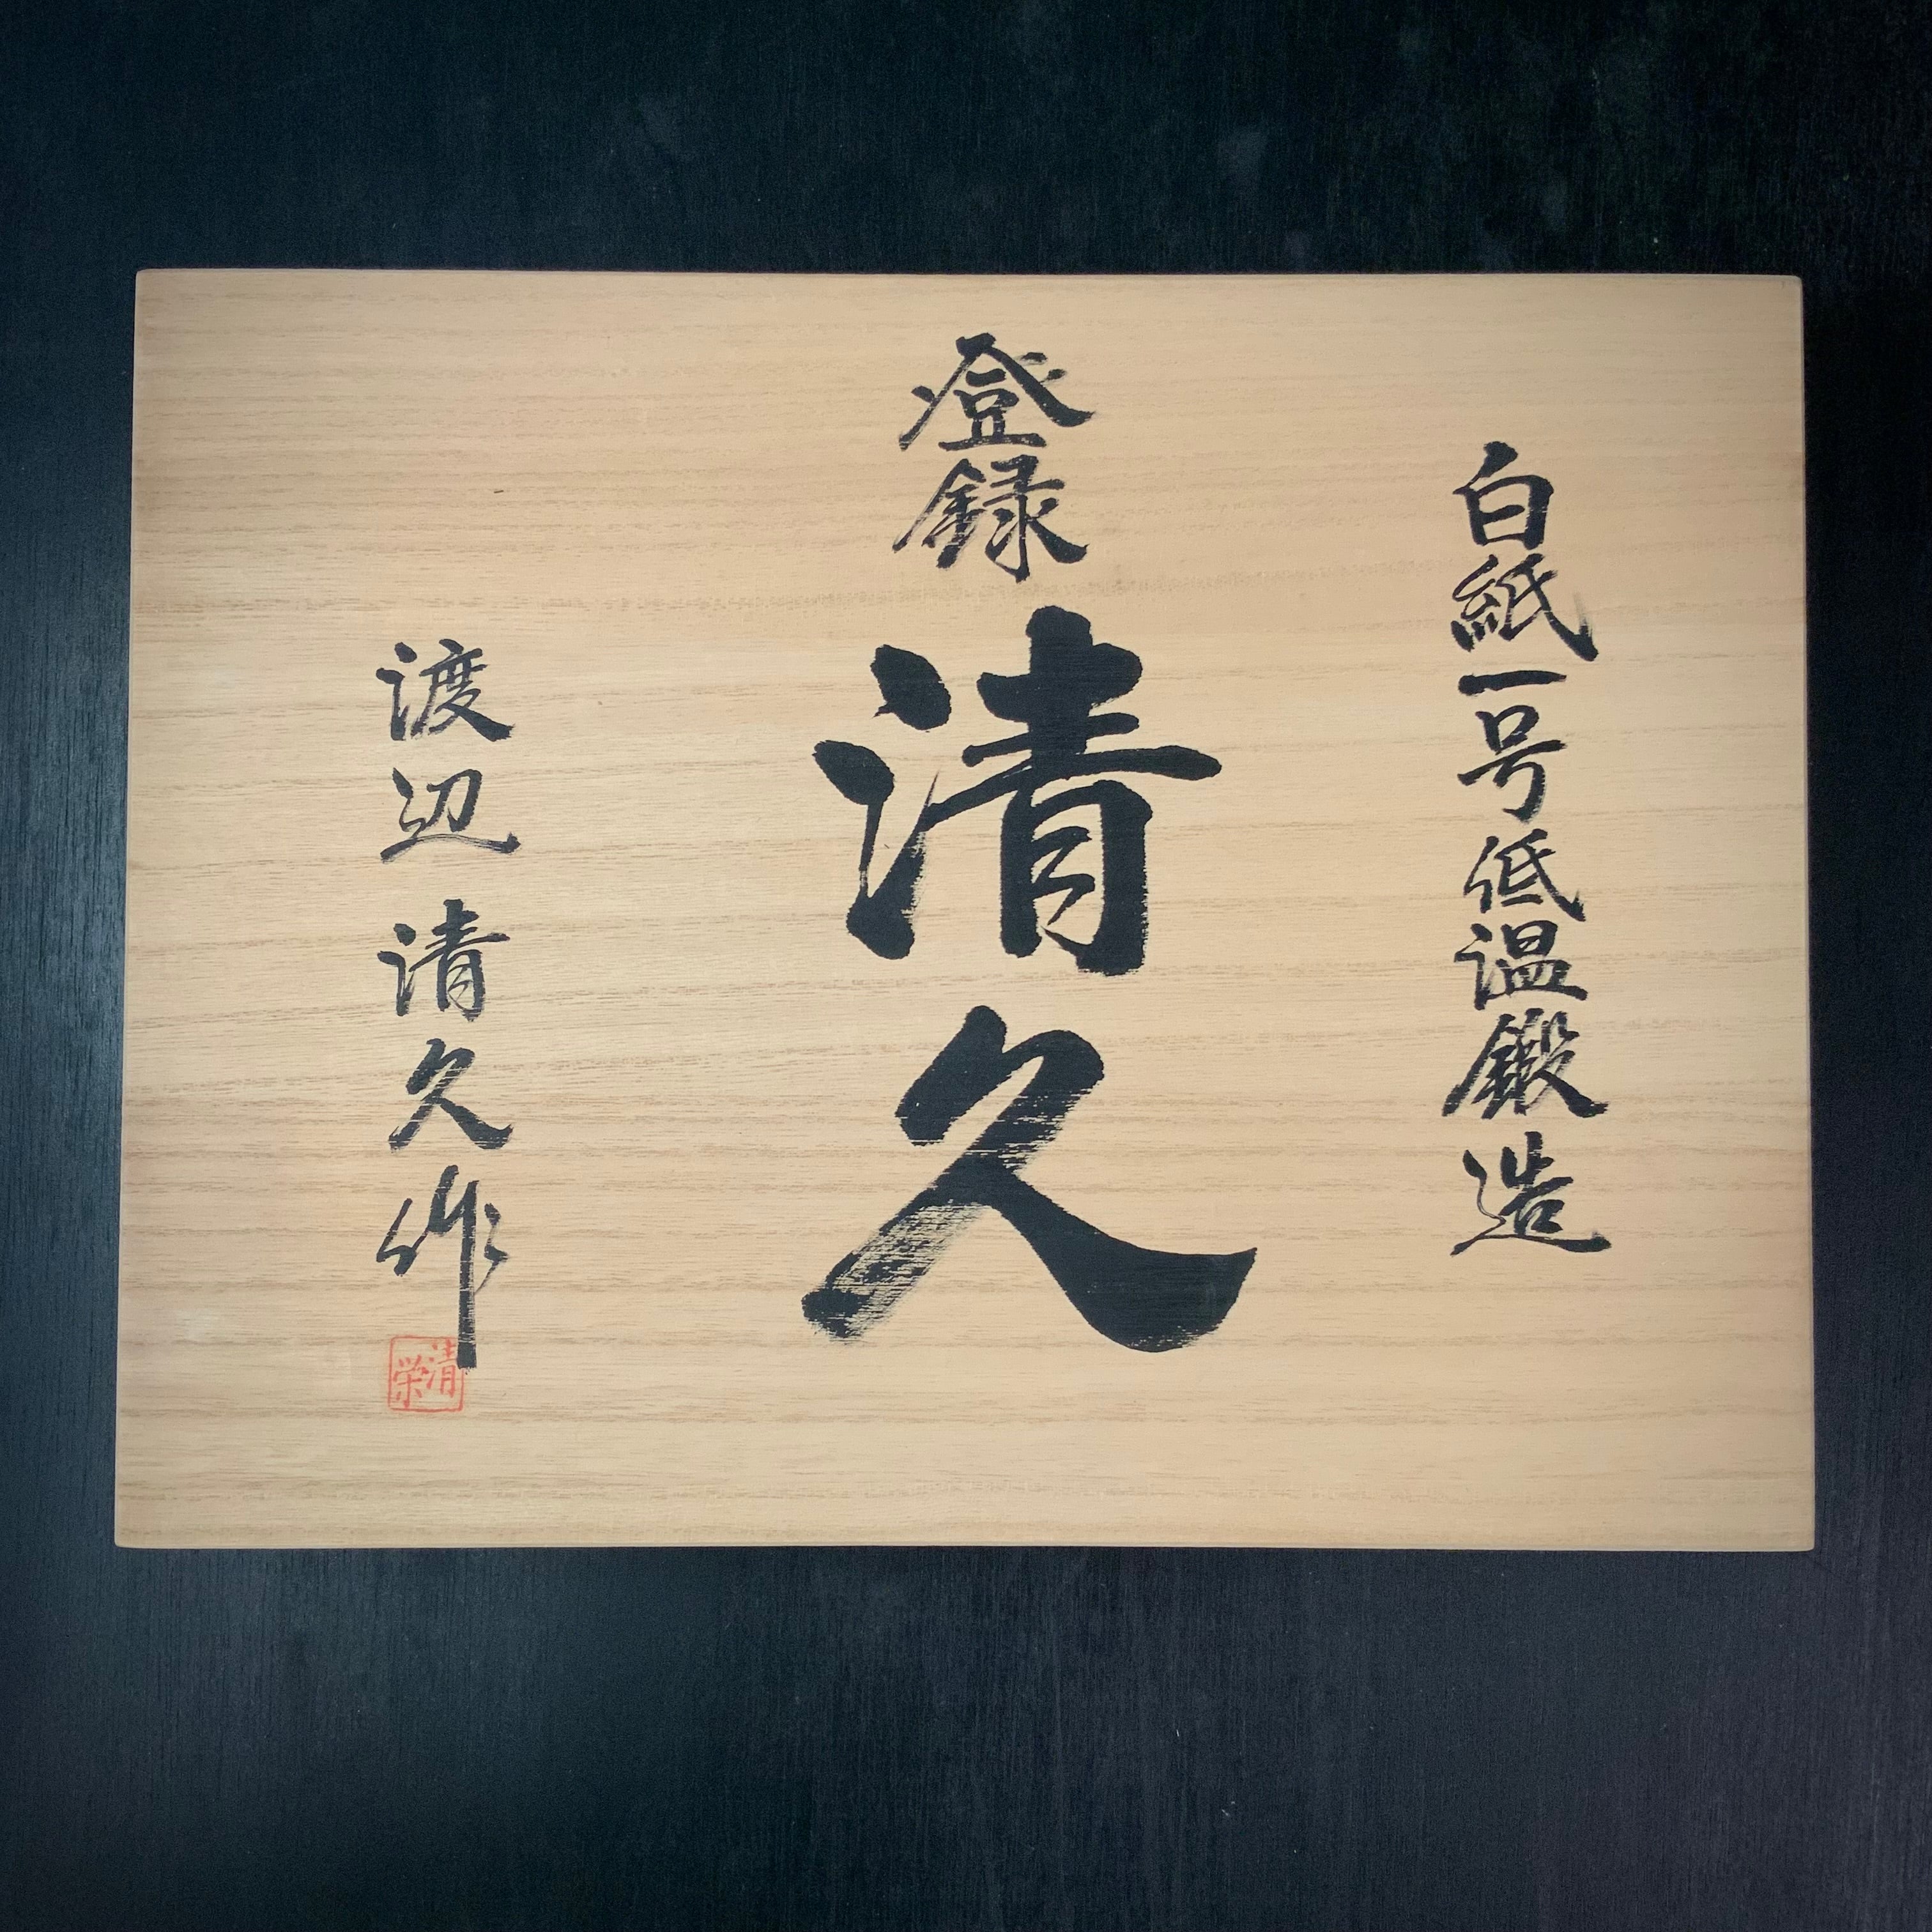 白紙一号低温鍛造
登録
清久
渡辺清久作
清栄